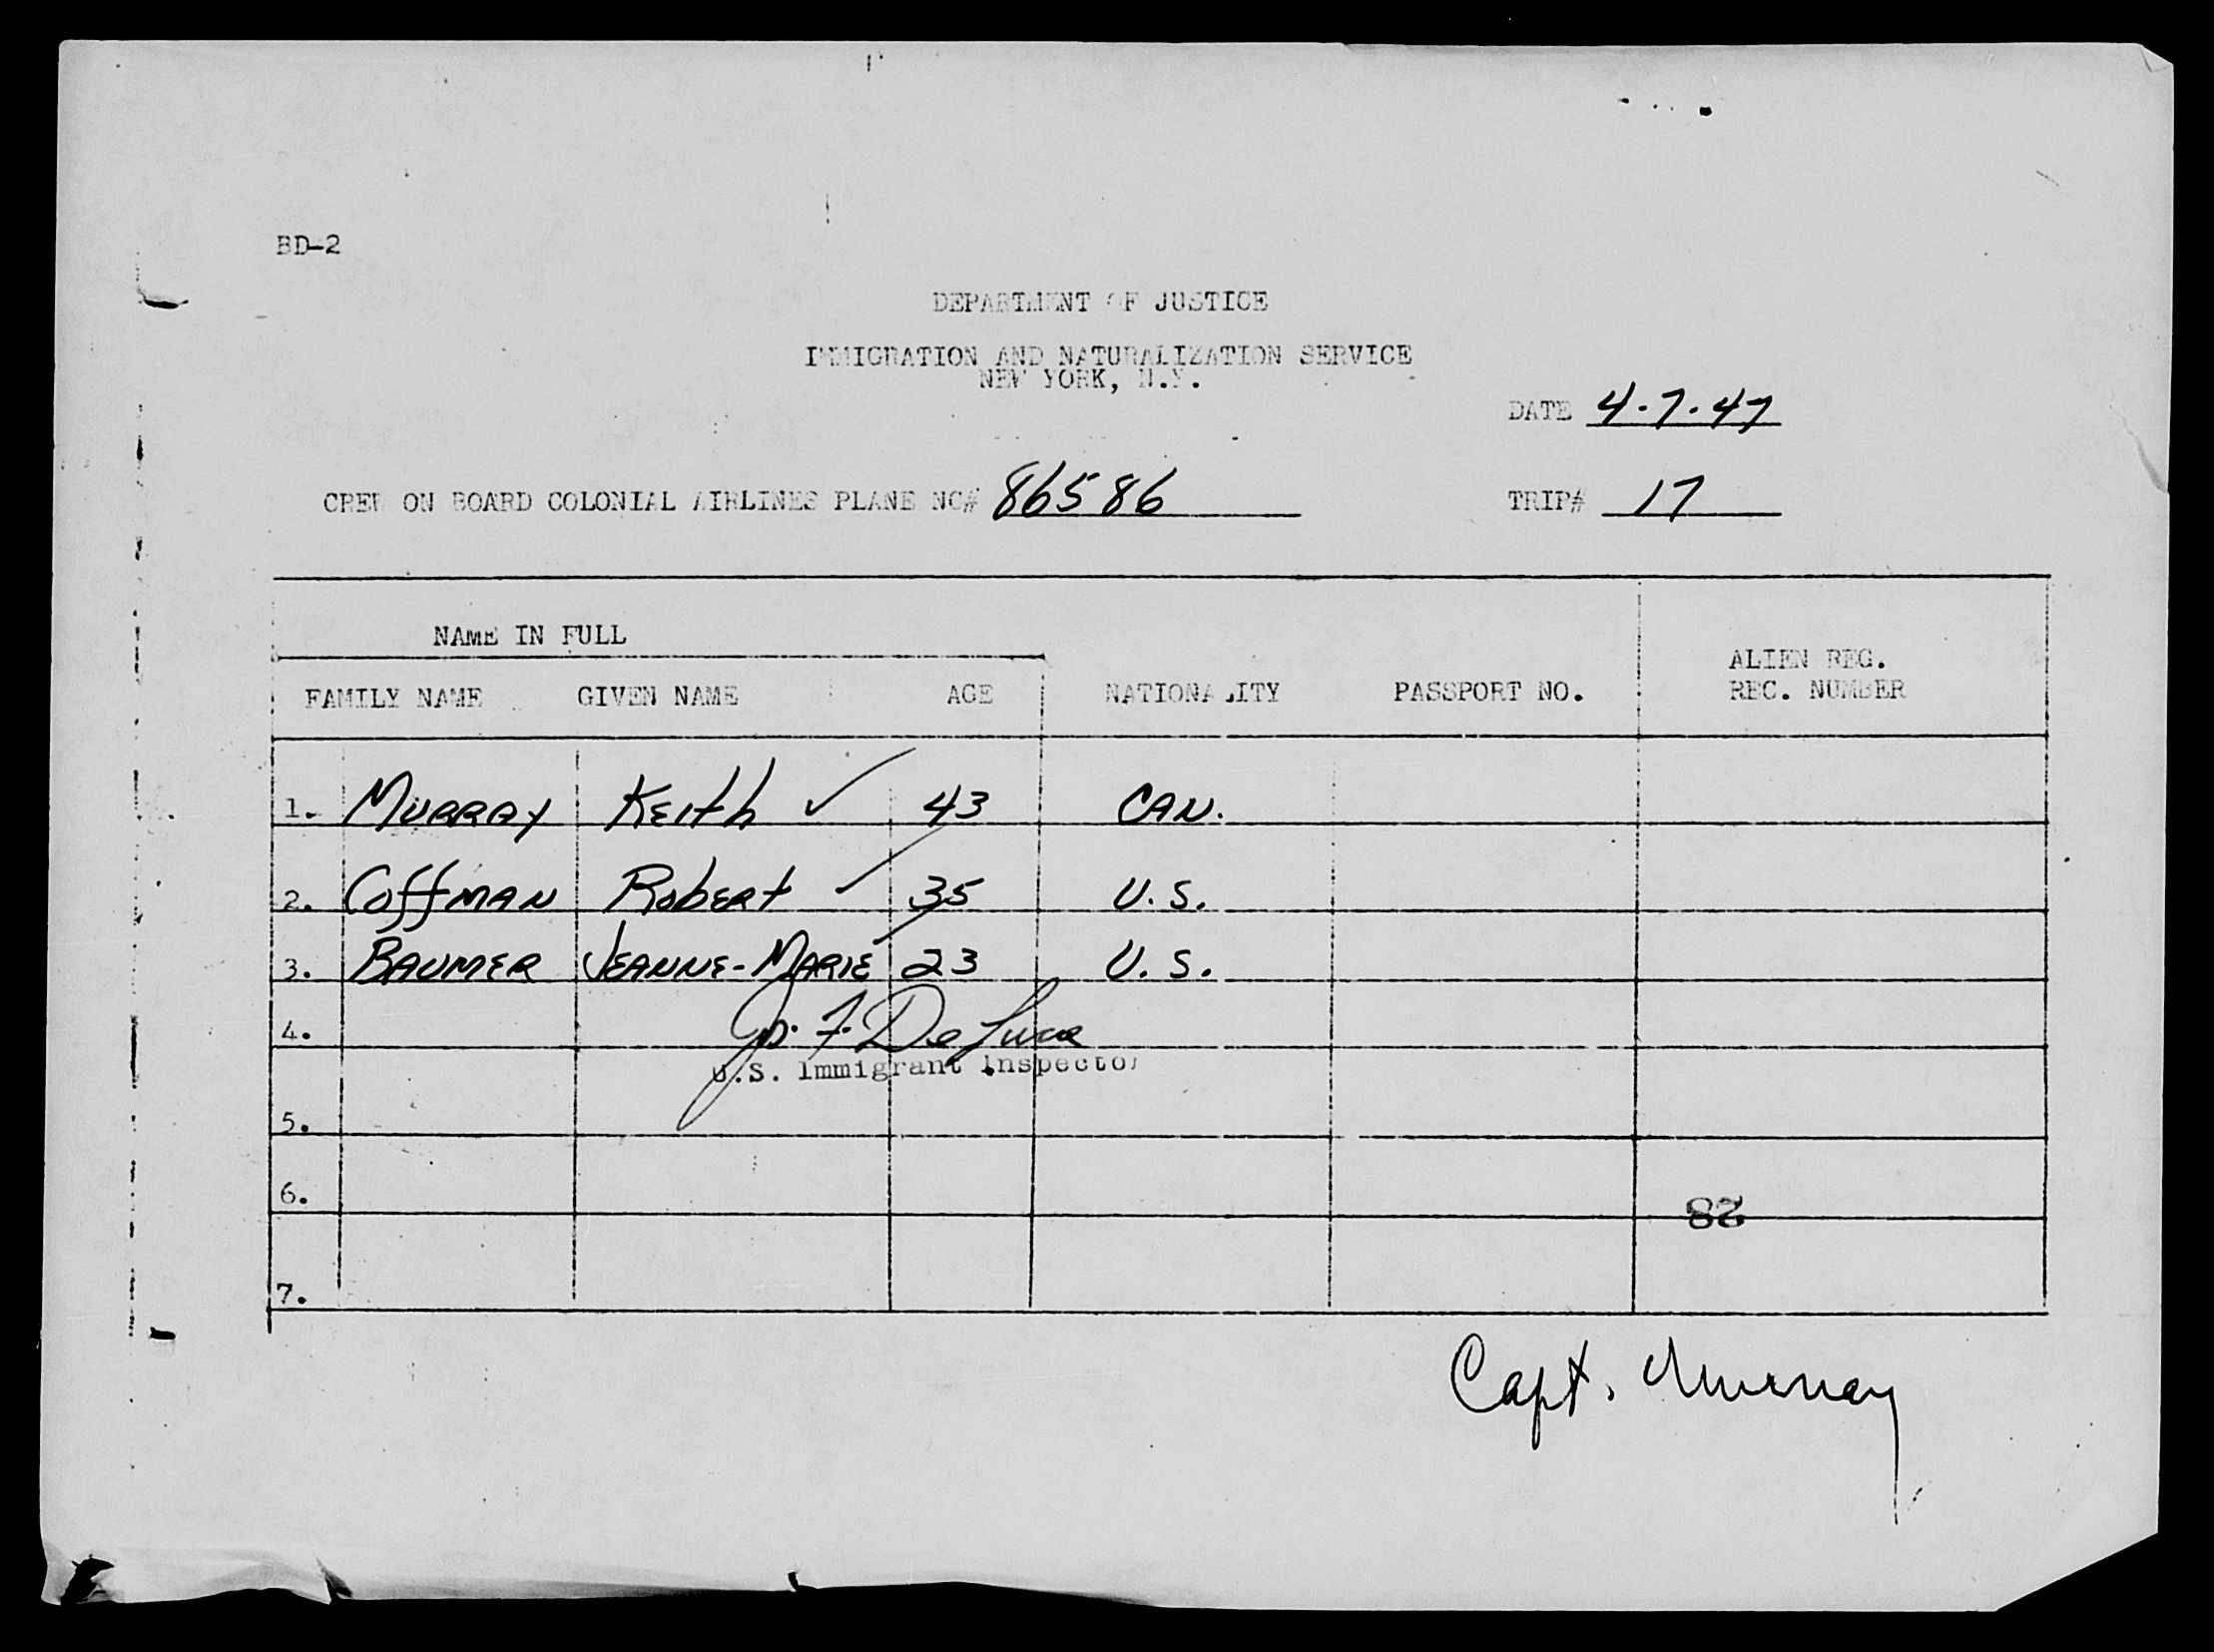 BD-2
DEPARTMENT OF JUSTICE
IMMIGRATION AND NATURALIZATION SERVICE
NEW YORK, N.Y.
DATE 4-7-47
CREW ON BOARD COLONIAL AIRLINES PLANE NC# 86586 TRIP# 17
NAME IN FULL
ALIEN REG.
FAMILY NAME GIVEN NAME AGE NATIONALITY PASSPORT NO. REC. NUMBER
1. MURRAY KEITH ✓ 43 CAN.
2. COFFMAN ROBERT ✓ 35 U.S.
3. BAUMER JEANNE-MARIE 23 U.S.
4. F. De Luca
U.S. Immigrant Inspector
5.
6.
28
7.
Capt. Murray